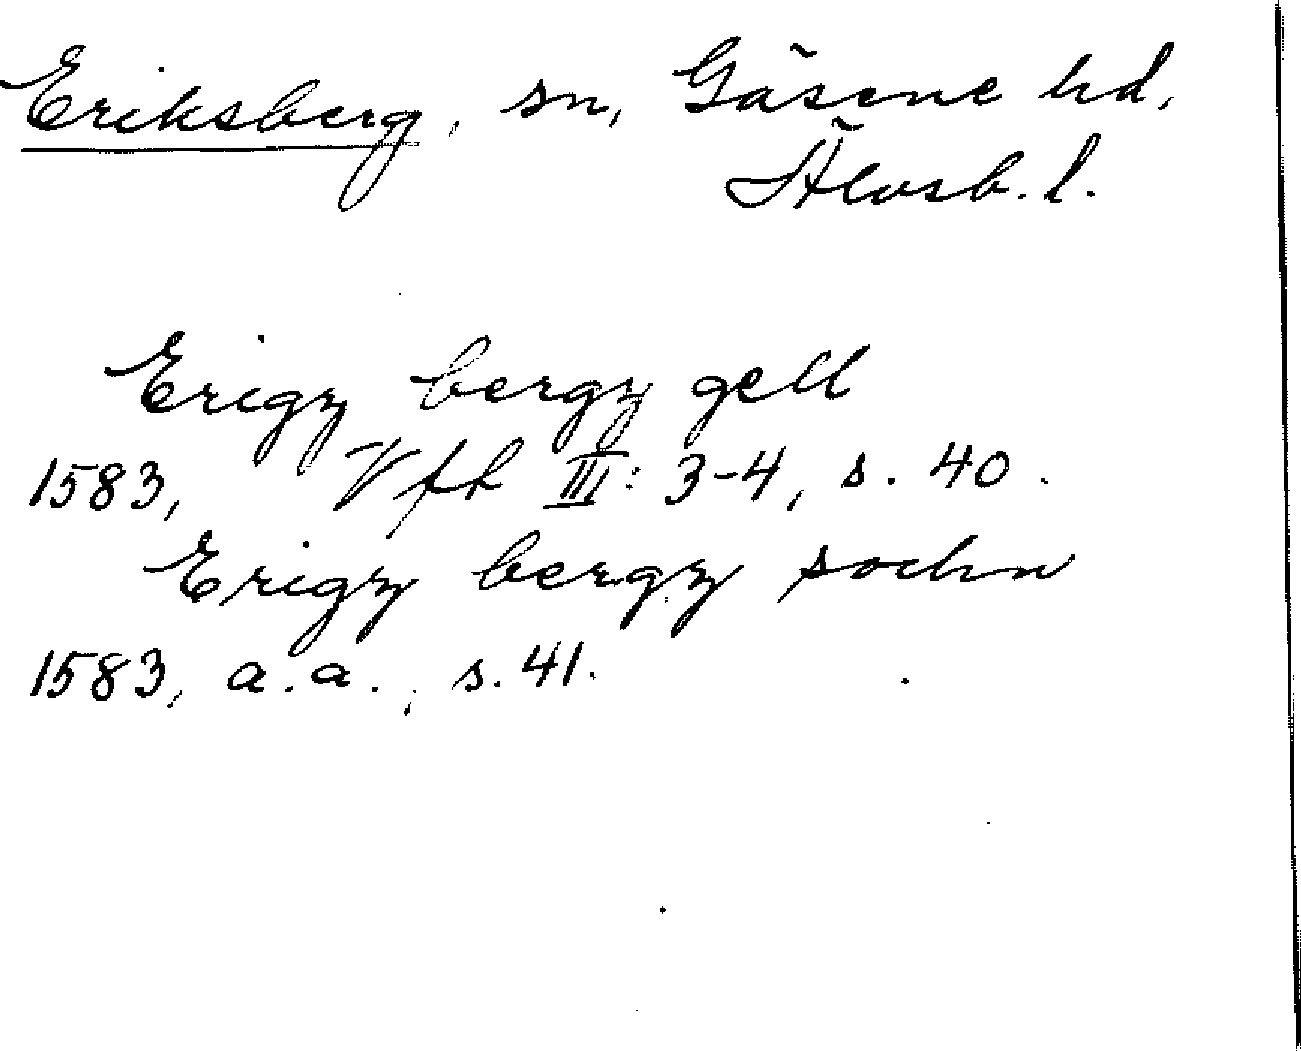 Eriksberg, sn, Gäsene hd,
Älvsb. l.
Erigz bergz gell
1583, Vfh III: 3-4, s. 40.
Erigz bergz sochn
1583, a.a., s. 41.